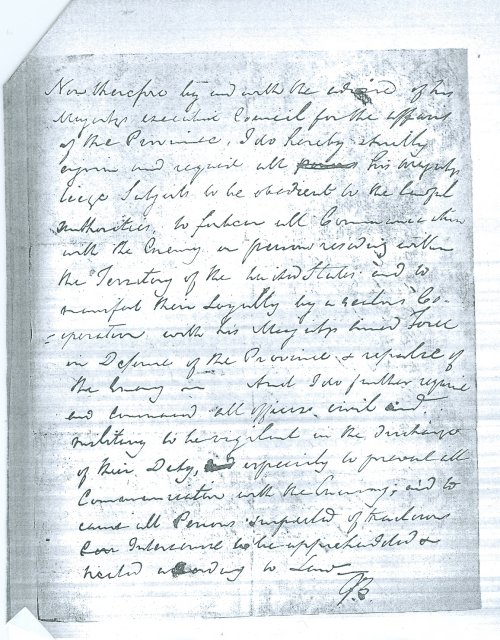 Now therefore by and with the advice of his
Majestys executive Council for the affairs
of the Province, I do hereby strictly
enjoin and require all his Majestys
liege Subjects to be obedient to the lawful
authorities, to forbear all Communication
with the Enemy or persons residing within
the Territory of the United States and to
manifest their Loyalty by a zealous Co-
=operation with his Majestys armed Force
in Defence of the Province & repulse of
the Enemy And I do further require
and command all officers civil and
military to be vigilant in the discharge
of their Duty, especially to prevent all
Communication with the Enemy; and to
cause all Persons suspected of traitorous
Intercourse to be apprehended &
treated according to Law